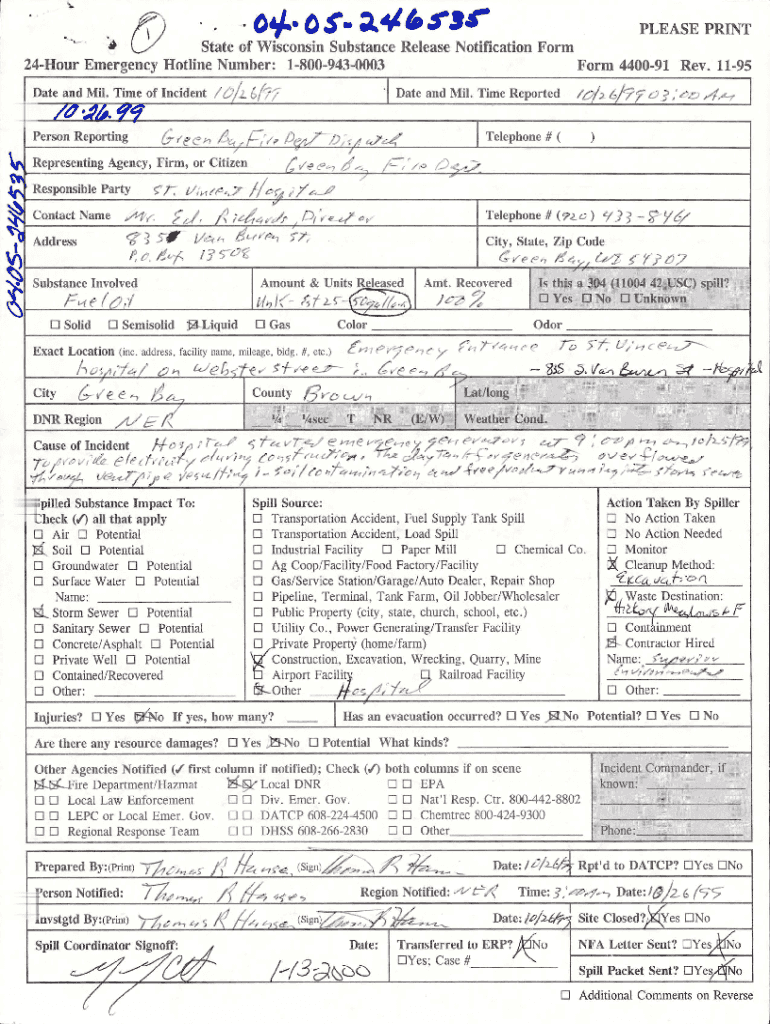 04-05-246535
1
PLEASE PRINT
State of Wisconsin Substance Release Notification Form
24-Hour Emergency Hotline Number: 1-800-943-0003 Form 4400-91 Rev. 11-95
Date and Mil. Time of Incident 10/26/99 Date and Mil. Time Reported 10/26/99 03:00 AM
10.26.99
04-05-246535
Person Reporting Green Bay Fire Dept Dispatch Telephone # ( )
Representing Agency, Firm, or Citizen Green Bay Fire Dept.
Responsible Party St. Vincent Hospital
Contact Name Mr. Ed. Richards, Director Telephone # (920) 433-8461
Address 835 Van Buren St. City, State, Zip Code
P.O. Box 13508 Green Bay, WI 54307
Substance Involved Amount & Units Released Amt. Recovered Is this a 304 (11004 42 USC) spill?
Fuel Oil Unk - Est 25-50 gallon 100% ☐ Yes ☐ No ☐ Unknown
☐ Solid ☐ Semisolid ☒ Liquid ☐ Gas Color Odor
Exact Location (inc. address, facility name, mileage, bldg. #, etc.) Emergency Entrance To St. Vincent
hospital on Webster street in Green Bay - 835 S. Van Buren St - Hospital
City Green Bay County Brown Lat/long
DNR Region NER ¼ ¼sec T NR (E/W) Weather Cond.
Cause of Incident Hospital started emergency generators at 9:00pm on 10/25/99,
to provide electricity during construction. The day tank for generator overflowed
through vent pipe resulting in soil contamination and free product running into storm sewer
Spilled Substance Impact To: Spill Source: Action Taken By Spiller
Check (✓) all that apply ☐ Transportation Accident, Fuel Supply Tank Spill ☐ No Action Taken
☐ Air ☐ Potential ☐ Transportation Accident, Load Spill ☐ No Action Needed
☒ Soil ☐ Potential ☐ Industrial Facility ☐ Paper Mill ☐ Chemical Co. ☐ Monitor
☐ Groundwater ☐ Potential ☐ Ag Coop/Facility/Food Factory/Facility ☒ Cleanup Method:
☐ Surface Water ☐ Potential ☐ Gas/Service Station/Garage/Auto Dealer, Repair Shop Excavation
Name: ☐ Pipeline, Terminal, Tank Farm, Oil Jobber/Wholesaler ☒ Waste Destination:
☒ Storm Sewer ☐ Potential ☐ Public Property (city, state, church, school, etc.) Hickory Meadows LF
☐ Sanitary Sewer ☐ Potential ☐ Utility Co., Power Generating/Transfer Facility ☐ Containment
☐ Concrete/Asphalt ☐ Potential ☐ Private Property (home/farm) ☒ Contractor Hired
☐ Private Well ☐ Potential ☒ Construction, Excavation, Wrecking, Quarry, Mine Name: Superior
☐ Contained/Recovered ☐ Airport Facility ☐ Railroad Facility Environmental
☐ Other: ☒ Other Hospital ☐ Other:
Injuries? ☐ Yes ☒ No If yes, how many? Has an evacuation occurred? ☐ Yes ☒ No Potential? ☐ Yes ☐ No
Are there any resource damages? ☐ Yes ☒ No ☐ Potential What kinds?
Other Agencies Notified (✓ first column if notified); Check (✓) both columns if on scene Incident Commander, if
☒ ☒ Fire Department/Hazmat ☒ ☒ Local DNR ☐ ☐ EPA known:
☐ ☐ Local Law Enforcement ☐ ☐ Div. Emer. Gov. ☐ ☐ Nat'l Resp. Ctr. 800-442-8802
☐ ☐ LEPC or Local Emer. Gov. ☐ ☐ DATCP 608-224-4500 ☐ ☐ Chemtrec 800-424-9300
☐ ☐ Regional Response Team ☐ ☐ DHSS 608-266-2830 ☐ ☐ Other Phone:
Prepared By:(Print) Thomas R Hansen (Sign) Date: 10/26/99 Rpt'd to DATCP? ☐Yes ☐No
Person Notified: Thomas R Hansen Region Notified: NER Time: 3:00Am Date: 10/26/99
Invstgtd By:(Print) Thomas R Hansen (Sign) Date: 10/26/99 Site Closed? ☒Yes ☐No
Spill Coordinator Signoff: Date: Transferred to ERP? ☒No NFA Letter Sent? ☐Yes ☒No
1-13-2000 ☐Yes; Case # Spill Packet Sent? ☐Yes ☒No
☐ Additional Comments on Reverse